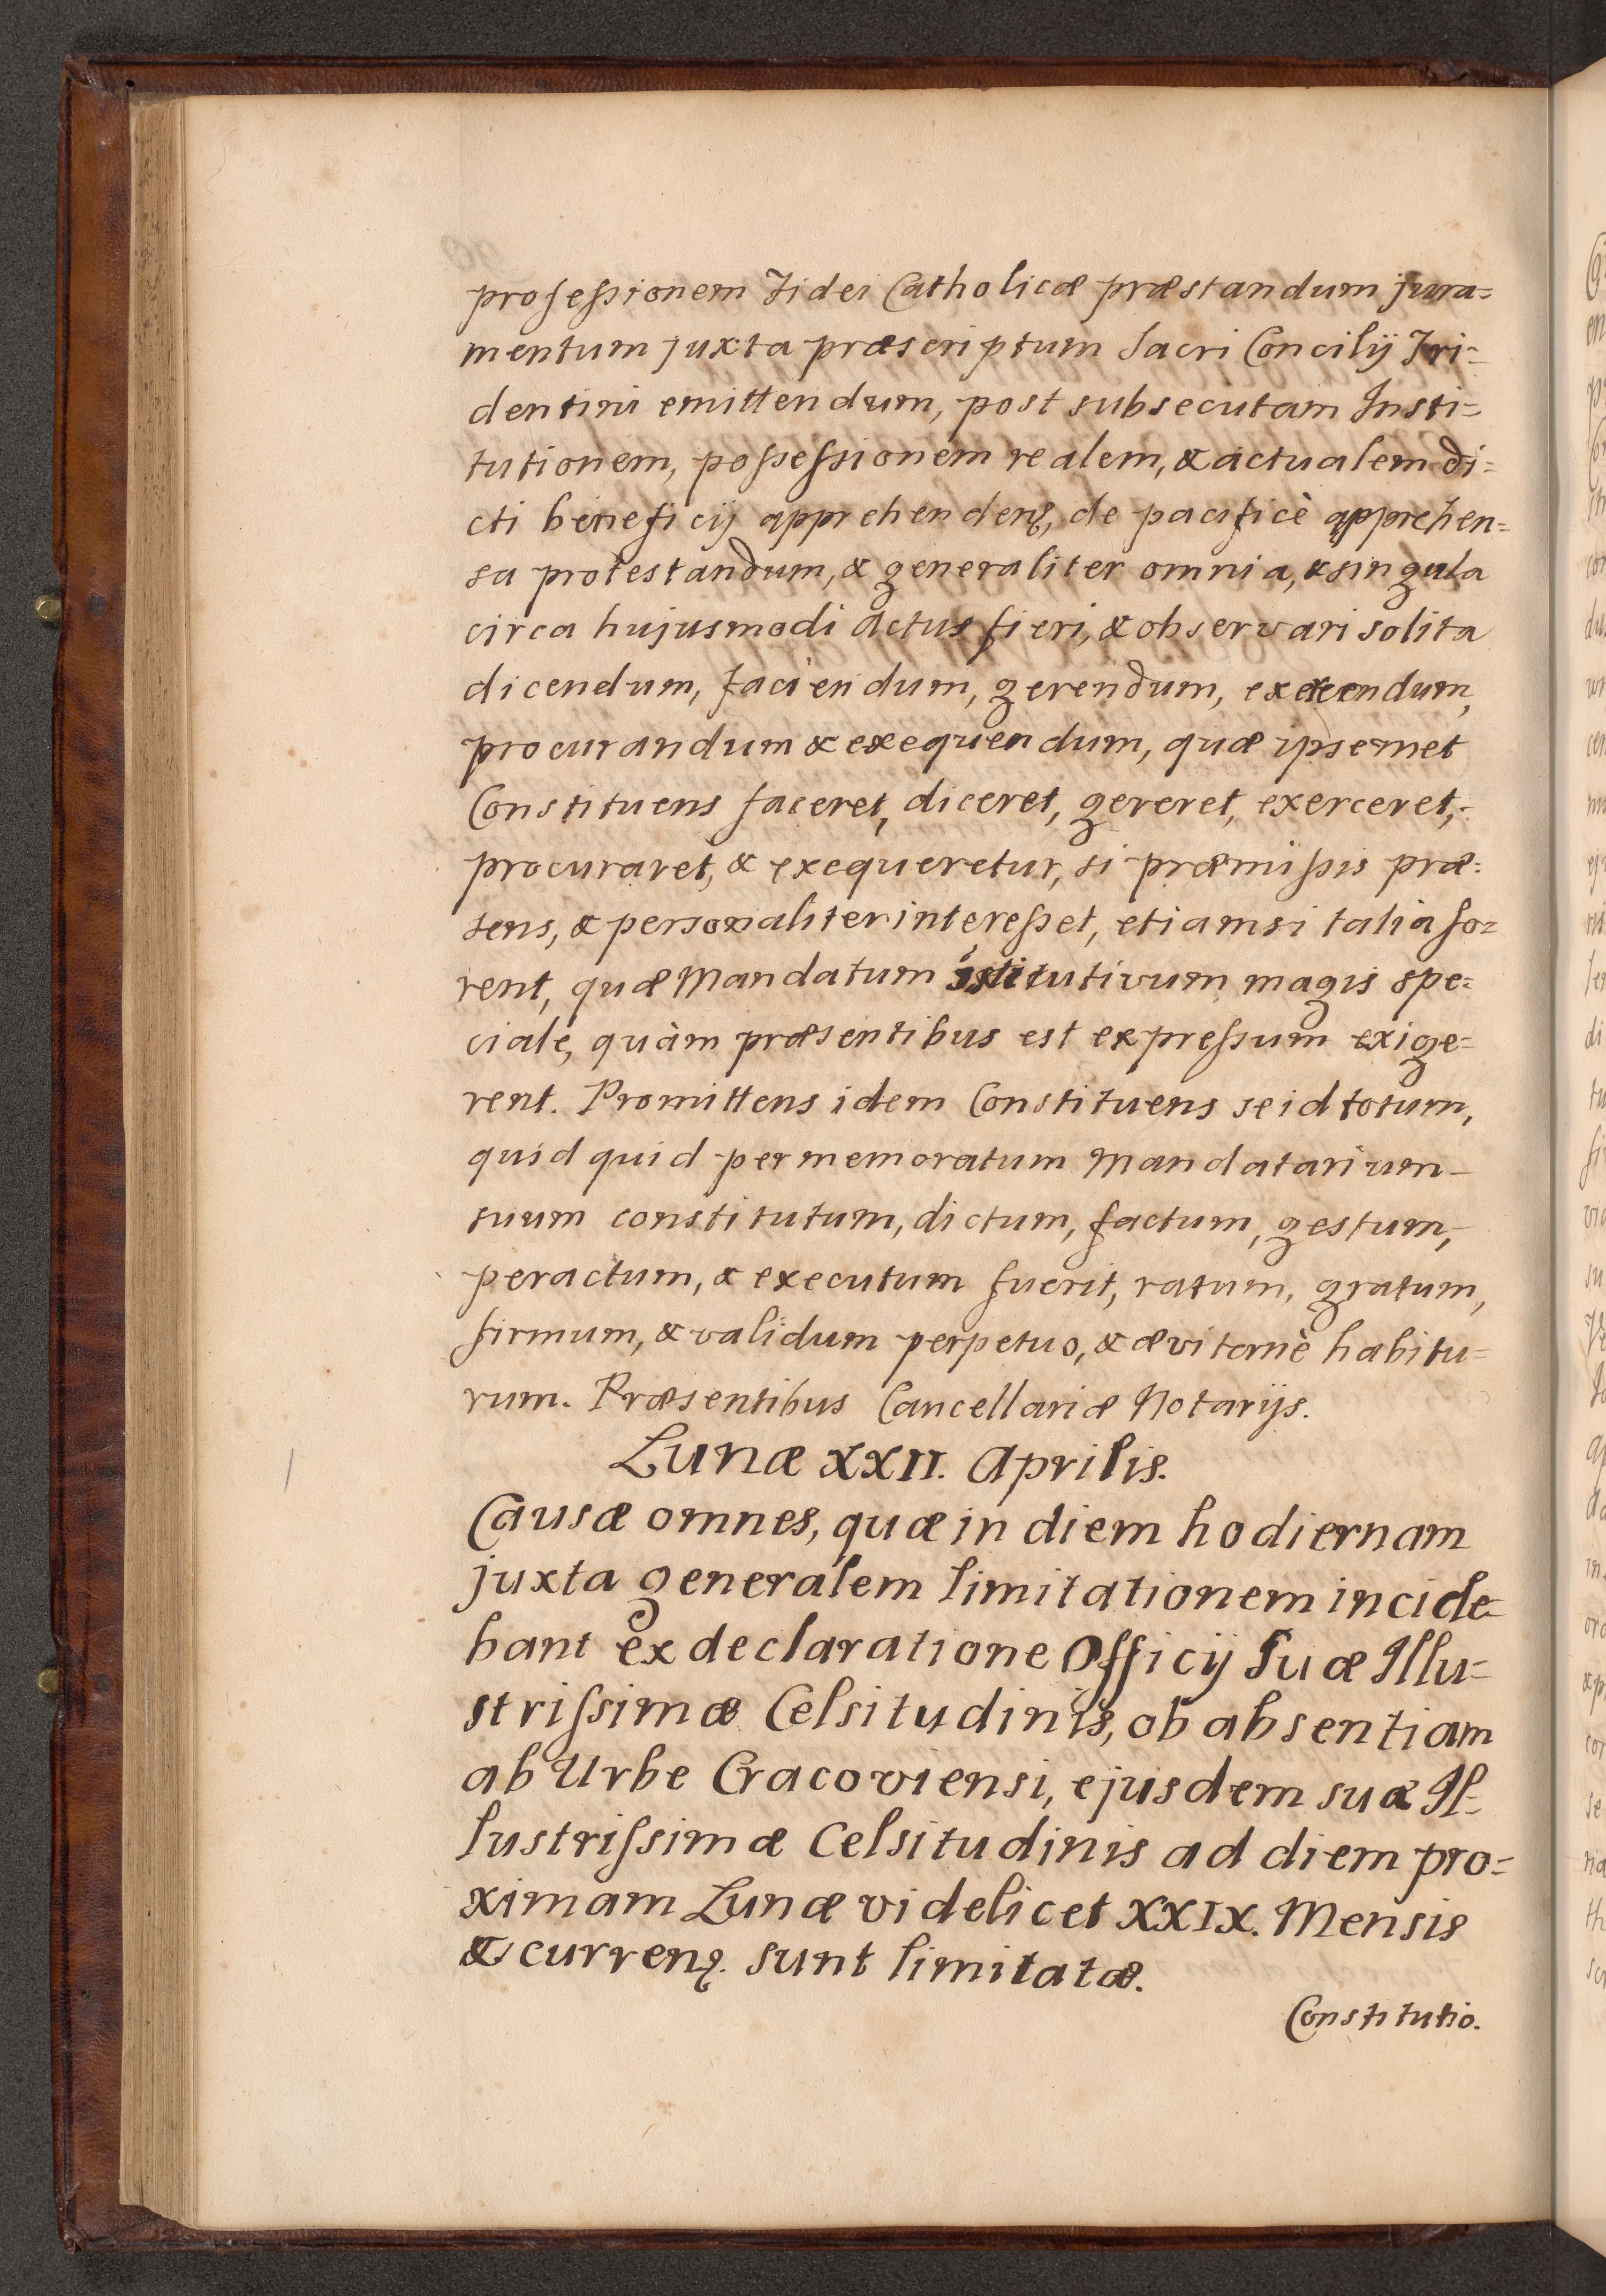 professionem Fidei Catholicæ præstandum jura=
mentum juxta præscriptum Sacri Concilij Tri=
dentini emittendum, post subsecutam Insti=
tutionem, possessionem realem, & actualem di=
cti beneficij apprehendenꝫ, de pacificè apprehen=
sa protestandum, & generaliter omnia, & singula
circa hujusmodi actus fieri, & observari solita
dicendum, faciendum, gerendum, exercendum,
procurandum & exequendum, quæ ipsemet
Constituens faceret, diceret, gereret, exerceret,
procuraret, & exequeretur, si præmissis præ=
sens, & personaliter interesset, etiamsi talia fo=
rent, quæ Mandatum istitutivum magis spe=
ciale, quàm præsentibus est expressum exige=
rent. Promittens idem Constituens se id totum,
quid quid per memoratum Mandatarium
suum constitutum, dictum, factum, gestum,
peractum, & executum fuerit, ratum, gratum,
firmum, & validum perpetuo, & æviternè habitu=
rum. Præsentibus Cancellariæ Notarijs.
Lunæ XXII. Aprilis.
Causæ omnes, quæ in diem hodiernam
juxta generalem limitationem incide=
bant ex declaratione Officij Suæ Illu=
strissimæ Celsitudinis, ob absentiam
ab Urbe Cracoviensi, ejusdem suæ Il=
lustrissimæ Celsitudinis ad diem pro=
ximam Lunæ videlicet XXIX. Mensis
& currenꝫ. sunt limitatæ.
Constitutio.